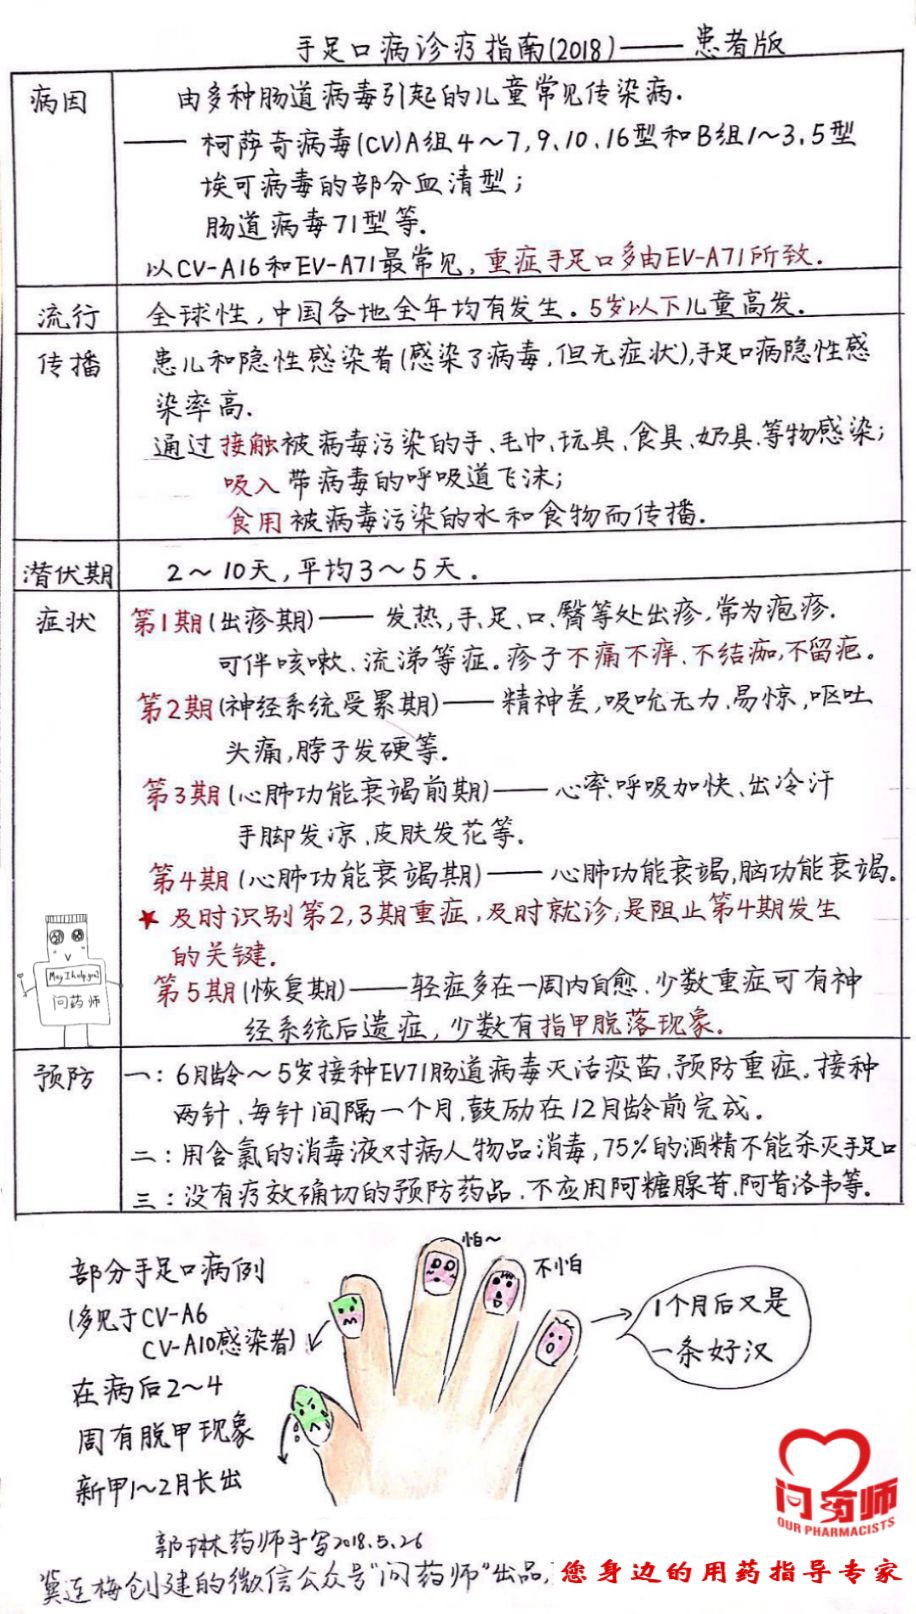 手足口病诊疗指南(2018)——患者版
病因
由多种肠道病毒引起的儿童常见传染病.
——柯萨奇病毒(CV)A组4~7,9、10、16型和B组1~3、5型
埃可病毒的部分血清型;
肠道病毒71型等.
以CV-A16和EV-A71最常见,重症手足口多由EV-A71所致.
流行
全球性,中国各地全年均有发生.5岁以下儿童高发.
传播
患儿和隐性感染者(感染了病毒,但无症状),手足口病隐性感
染率高.
通过接触被病毒污染的手、毛巾、玩具、食具、奶具等物感染;
吸入带病毒的呼吸道飞沫;
食用被病毒污染的水和食物而传播.
潜伏期
2~10天,平均3~5天.
症状
第1期(出疹期)——发热,手、足、口、臀等处出疹,常为疱疹.
可伴咳嗽、流涕等症。疹子不痛不痒、不结痂,不留疤。
第2期(神经系统受累期)——精神差,吸吮无力、易惊,呕吐
头痛,脖子发硬等.
第3期(心肺功能衰竭前期)——心率、呼吸加快、出冷汗
手脚发凉、皮肤发花等.
第4期(心肺功能衰竭期)——心肺功能衰竭,脑功能衰竭。
★及时识别第2,3期重症,及时就诊,是阻止第4期发生
的关键.
第5期(恢复期)——轻症多在一周内自愈、少数重症可有神
经系统后遗症,少数有指甲脱落现象.
May I help you?
问药师
预防
一:6月龄~5岁接种EV71肠道病毒灭活疫苗,预防重症。接种
两针、每针间隔一个月,鼓励在12月龄前完成.
二:用含氯的消毒液对病人物品消毒,75%的酒精不能杀灭手足口
三:没有疗效确切的预防药品、不应用阿糖腺苷、阿昔洛韦等.
部分手足口病例
(多见于CV-A6
CV-A10感染者)
在病后2~4
周有脱甲现象
新甲1~2月长出
怕~
不怕
1个月后又是
一条好汉
郭琳药师手写2018.5.26
冀连梅创建的微信公众号"问药师"出品,
问药师
OUR PHARMACISTS
您身边的用药指导专家